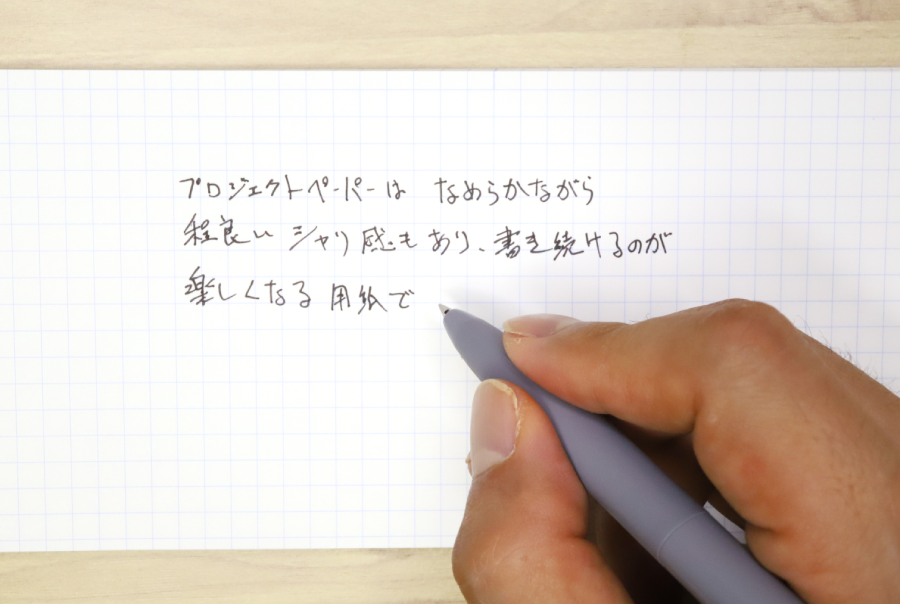 プロジェクトペーパーは なめらかながら
程良い シャリ感も あり、書き続けるのが
楽しくなる 用紙で